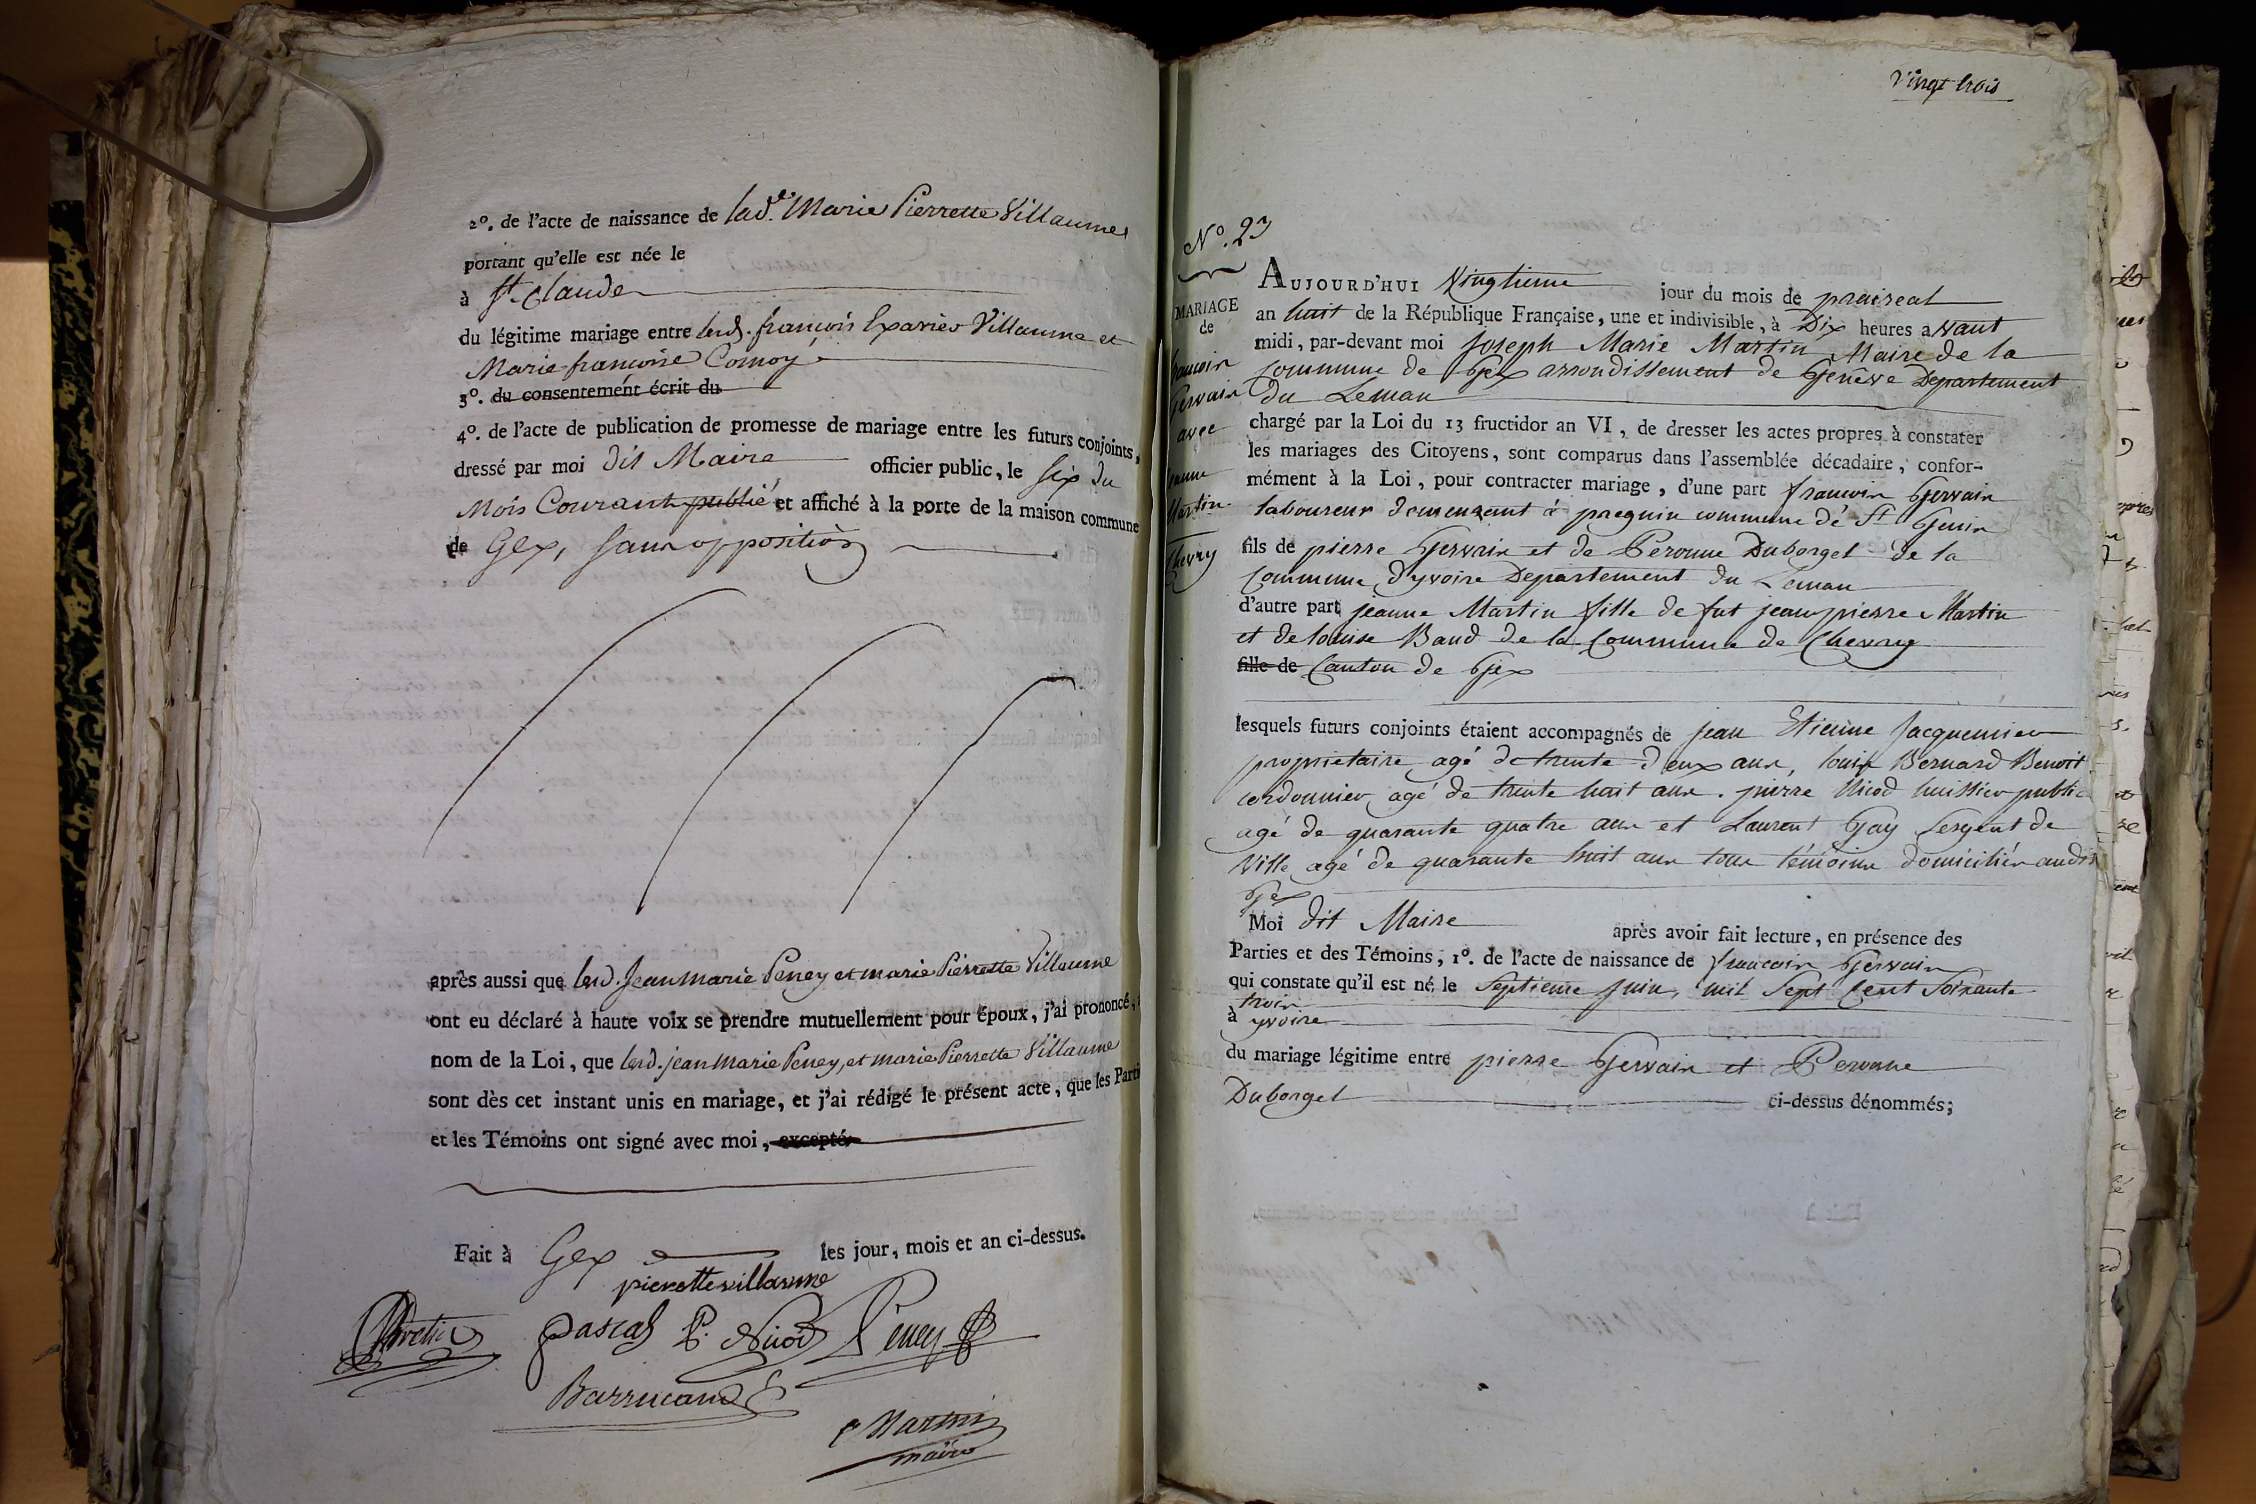 2º. de l'acte de naissance de lad.e Marie Pierrette Villaume
portant qu'elle est née le
à St Claude
du légitime mariage entre led. françois Exavier Villaume et
Marie françoise Comoy
3º. du consentement écrit du
4º. de l'acte de publication de promesse de mariage entre les futurs conjoints,
dressé par moi dit Maire officier public, le six du
Mois Courant publié et affiché à la porte de la maison commune
de Gex, sans opposition
après aussi que led. Jean Marie Peney et marie Pierrette Villaume
ont eu déclaré à haute voix se prendre mutuellement pour époux, j'ai prononcé,
nom de la Loi, que led. jean Marie Peney, et marie Pierrette Villaume
sont dès cet instant unis en mariage, et j'ai rédigé le présent acte, que les Parti
et les Témoins ont signé avec moi, excepté
Fait à Gex les jour, mois et an ci-dessus.
pierrette villaume
Pascal P. Nicod Peney
Barrucand
Martin
maire
Vingt trois
Nº. 23
MARIAGE
de
françois
Gervais
avec
jeanne
Martin
Chevry
AUJOURD'HUI Vingtieme jour du mois de prairéal
an huit de la République Française, une et indivisible, à Dix heures avant
midi, par-devant moi Joseph Marie Martin Maire de la
Commune de Gex arrondissement de Genêve Departement
du Leman
chargé par la Loi du 13 fructidor an VI, de dresser les actes propres à constater
les mariages des Citoyens, sont comparus dans l'assemblée décadaire, confor-
mément à la Loi, pour contracter mariage, d'une part françois Gervais
laboureur demeurant à pregnin commune de St Genis
fils de pierre Gervais et de Peronne Duborgel de la
Commune d'yvoire Departement du Leman
d'autre part jeanne Martin fille de fut jean pierre Martin
et de louise Baud de la Commune de Chevry
fille de Canton de Gex
lesquels futurs conjoints étaient accompagnés de jean Etienne Jacquemier
propriétaire agé de trente deux ans, louis Bernard Benoit
cordonnier agé de trente huit ans. pierre Nicod huissier public
agé de quarante quatre ans et Laurent Gay Sergent de
Ville agé de quarante huit ans tous témoins domiciliés audit
Gex
Moi dit Maire après avoir fait lecture, en présence des
Parties et des Témoins, 1º. de l'acte de naissance de françois Gervais
qui constate qu'il est né le Septieme juin, mil Sept Cent Soixante
trois
à yvoire
du mariage légitime entre pierre Gervais et Peronne
Duborgel ci-dessus dénommés;